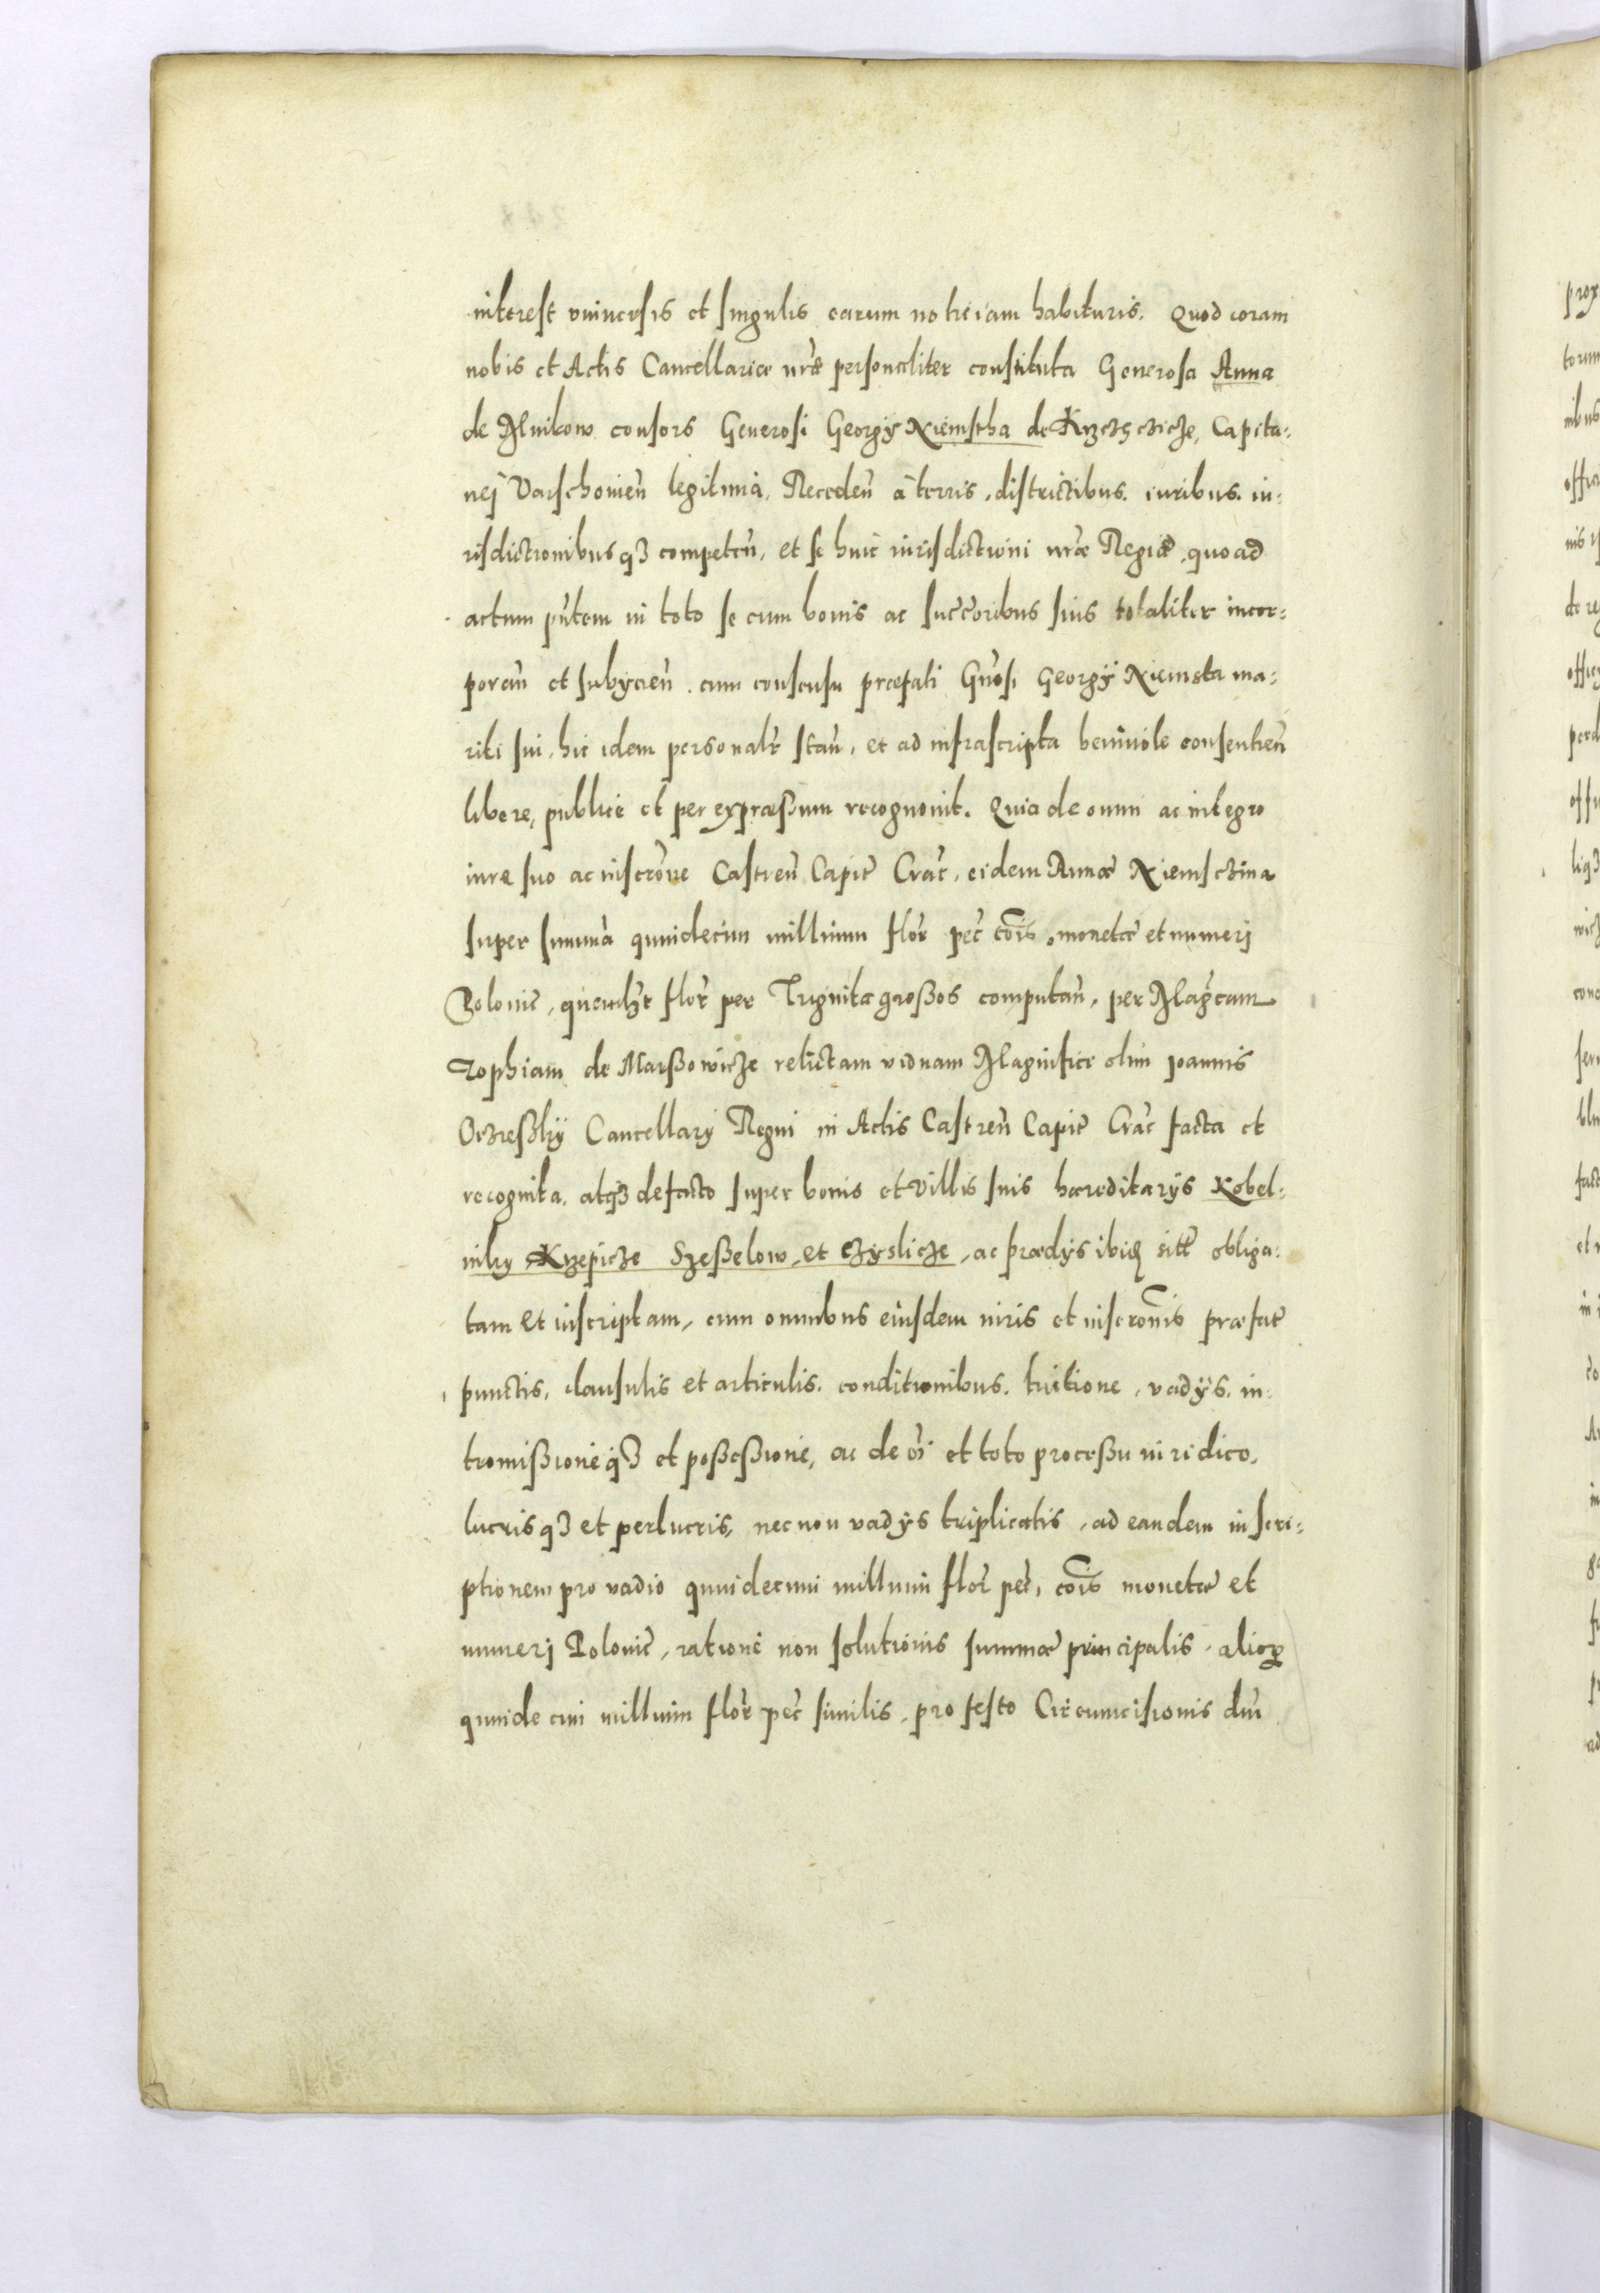 interest vniuersis et singulis earum noticiam habituris. Quod coram
nobis et Actis Cancellariæ nr̃æ personaliter constituta Generosa Anna
de Mnikow consors Generosi Georgÿ Niemstha de Krzczczicze, Capita:
nej Varschouien̄ legitima, Receden̄ à terris, districtibus, iuribus, iu:
risdictionibusqꝫ competen̄, et se huic iurisdictioni nr̃æ Regiæ, quo ad
actum pn̄tem in toto se cum bonis ac succ̄oribus suis totaliter incor:
poran̄ et subÿcien̄, cum consensu præfati Gn̄osi Georgÿ Niemsta ma:
riti sui, hic idem personalr̃ stan̄, et ad infrascripta beniuole consentien̄
libere, publice et per expræßum recognouit. Quia de omni ac integro
iure suo ac inscr̄one Castren̄ Capit̄ Crac̄, eidem Annæ Niemsczina
super summā quindecim millium flor̄ pec̄ cōis, monetæ et numerj
Polonic̄, quemlꝫt flor̄ per Triginta großos computan̄, per Mag̃cam
Zophiam de Marßowicze relictam viduam Magnifici olim Joannis
Oczießkÿ Cancellarÿ Regni in Actis Castren̄ Capit̄ Crac̄ facta et
recognita, atqꝫ de facto super bonis et villis suis hæreditarÿs Kobel:
niky Krzepicze Szeßelow, et Czÿslicze, ac prædÿs ibid sit̄ obliga:
tam et inscriptam, cum omnibus eiusdem iuris et inscr̄onis præfat̄
punctis, clausulis et articulis, conditionibus, tuitione, vadÿs, in:
tromißioneqꝫ et poßeßione, ac de oī et toto proceßu iuridico,
lucrisqꝫ et perlucris, necnon vadÿs triplicatis, ad eandem inscri:
ptionem pro vadio quindecim millium flor̄ pec̄, cōis monetæ et
numerj Polonic̄, ratione non solutionis summæ principalis, alioꝝ
quindecim millium flor̄ pec̄ similis, pro festo Circumcisionis dn̄i